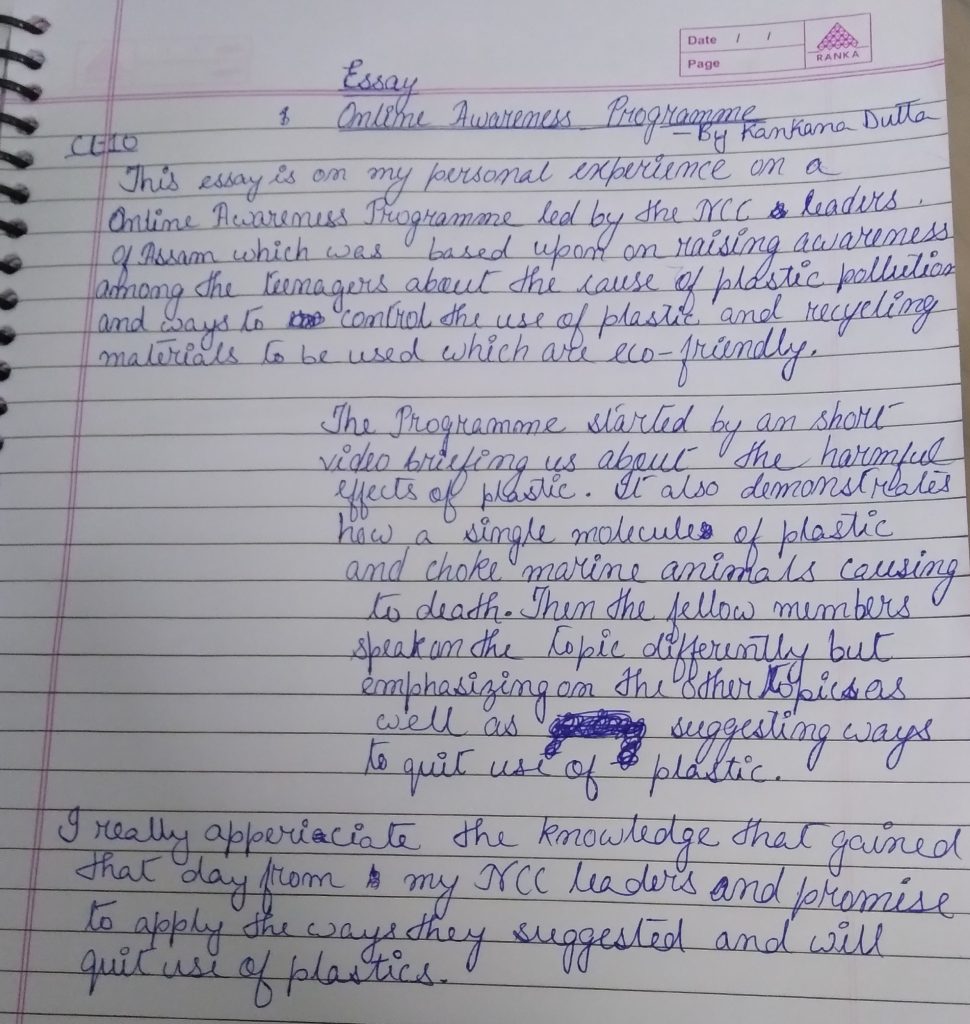 Date / /
Page
RANKA
Essay
Online Awareness Programme
- By Kankana Dutta
This essay is on my personal experience on a
Online Awareness Programme led by the NCC leaders
of Assam which was based upon on raising awareness
among the teenagers about the cause of plastic pollution
and ways to control the use of plastic and recycling
materials to be used which are eco-friendly.
The Programme started by an short
video briefing us about the harmful
effects of plastic. It also demonstrates
how a single molecule of plastic
and choke marine animals causing
to death. Then the fellow members
speak on the topic differently but
emphasizing on the other topics as
well as suggesting ways
to quit use of plastic.
I really apperiaciate the knowledge that gained
that day from my NCC leaders and promise
to apply the ways they suggested and will
quit use of plastics.